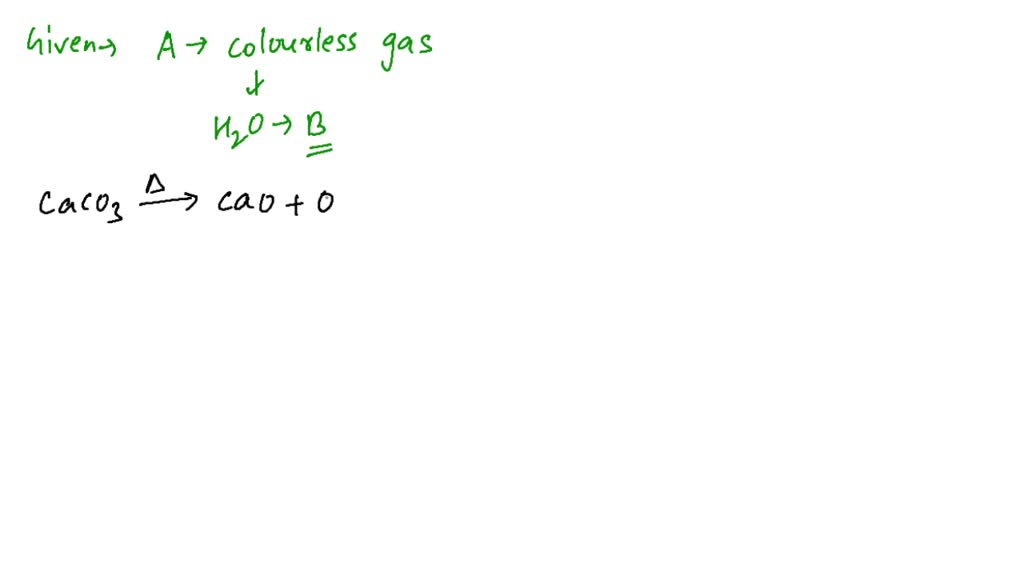 Given→ A→ colourless gas
+
H₂O → B
CaCO₃ —Δ→ CaO + O